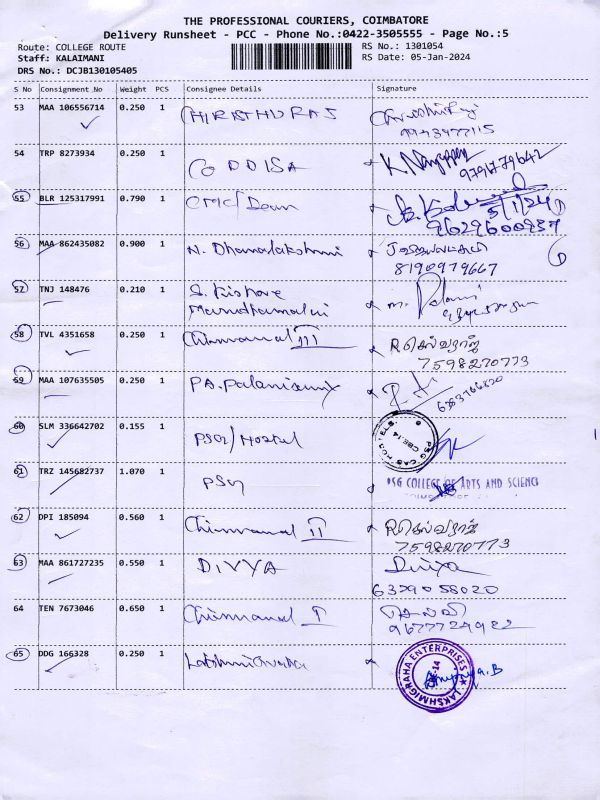 THE PROFESSIONAL COURIERS, COIMBATORE
Delivery Runsheet - PCC - Phone No.:0422-3505555 - Page No.:5
Route: COLLEGE ROUTE
RS No.: 1301054
Staff: KALAIMANI
RS Date: 05-Jan-2024
DRS No.: DCJB130105405
S No Consignment No Weight PCS Consignee Details Signature
53 MAA 106556714 0.250 1
9943977115
54 TRP 8273934 0.250 1 CODDISA
9791779642
55 BLR 125317991 0.790 1 CMC/Dean 5/1/24
9629600937
56 MAA 862435082 0.900 1 N. Dhanalakshmi
8190979667
57 TNJ 148476 0.210 1 S. Kishore
58 TVL 4351658 0.250 1 Chinnamal III R செல்வராஜ்
7598270773
59 MAA 107635505 0.250 1 P.A. Palanisamy
60 SLM 336642702 0.155 1 PSG/Hostel
61 TRZ 145682737 1.070 1 PSG PSG COLLEGE OF ARTS AND SCIENCE
62 DPI 185094 0.560 1 Chinnamal II R செல்வராஜ்
7598270773
63 MAA 861727235 0.550 1 DIVYA Divya
6379058020
64 TEN 7673046 0.650 1 Chinnamal I செல்வி
9677724982
65 DDG 166328 0.250 1 LAKSHMIGRAHA ENTERPRISES